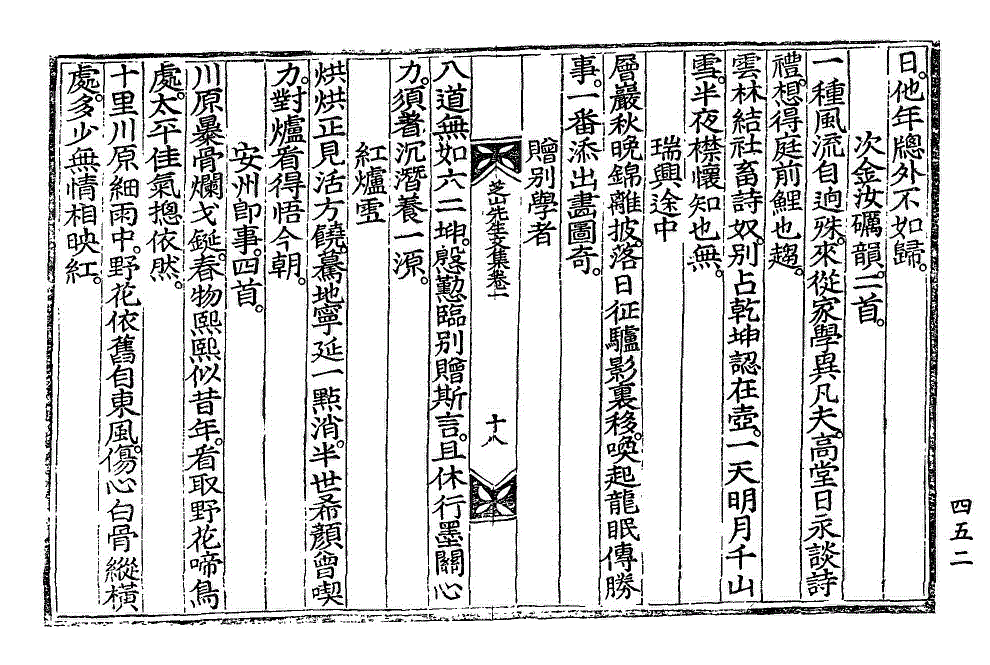 日。他年牕外不如歸。
次金汝礪韻。二首。
一種風流自逈殊。來從家學異凡夫。高堂日永談詩
禮。想得庭前鯉也趨。
雲林結社畜詩奴。別占乾坤認在壺。一天明月千山
雪。半夜襟懷知也無。
瑞興途中
層巖秋晩錦離披。落日征驢影裏移。喚起龍眠傳勝
事。一番添出畵圖奇。
贈別學者
芝山先生文集卷一
十八
八道無如六二坤。慇懃臨別贈斯言。且休行墨關心
力。須著沉潛養一源。
紅爐雪
烘烘正見活方饒。驀地寧延一點消。半世希顏曾喫
力。對爐看得悟今朝。
安州卽事。四首。
川原暴骨爛戈鋋。春物熙熙似昔年。看取野花啼鳥
處。太平佳氣摠依然。
十里川原細雨中。野花依舊自東風。傷心白骨縱橫
處。多少無情相映紅。
四五二